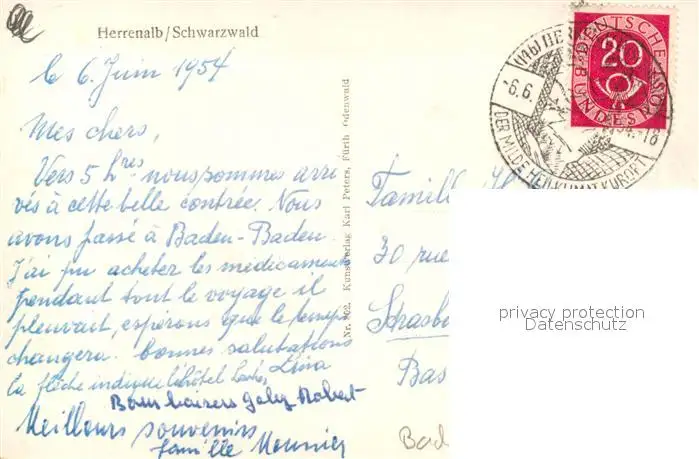 Herrenalb/Schwarzwald
le 6 Juin 1954
Mes chers,
Vers 5 hres nous sommes arri
vés à cette belle contrée. Nous
avons passé à Baden-Baden.
J'ai pu acheter les médicaments
pendant tout le voyage il
pleuvait, espérons que le temps
changera. bonnes salutations
la flèche indique l'hôtel Lina
Bons baisers Robert
Meilleurs souvenirs
famille Meunier
Nr. 802. Kunstverlag Karl Peters, Fürth Odenwald
Famill
30 rue
Strasb
Bas
Bad
DEUTSCHE
20
BUNDESPOST
(14b) HER
-6.6. 54.-18
DER MILDE HEILKLIMAT. KURORT
privacy protection
Datenschutz